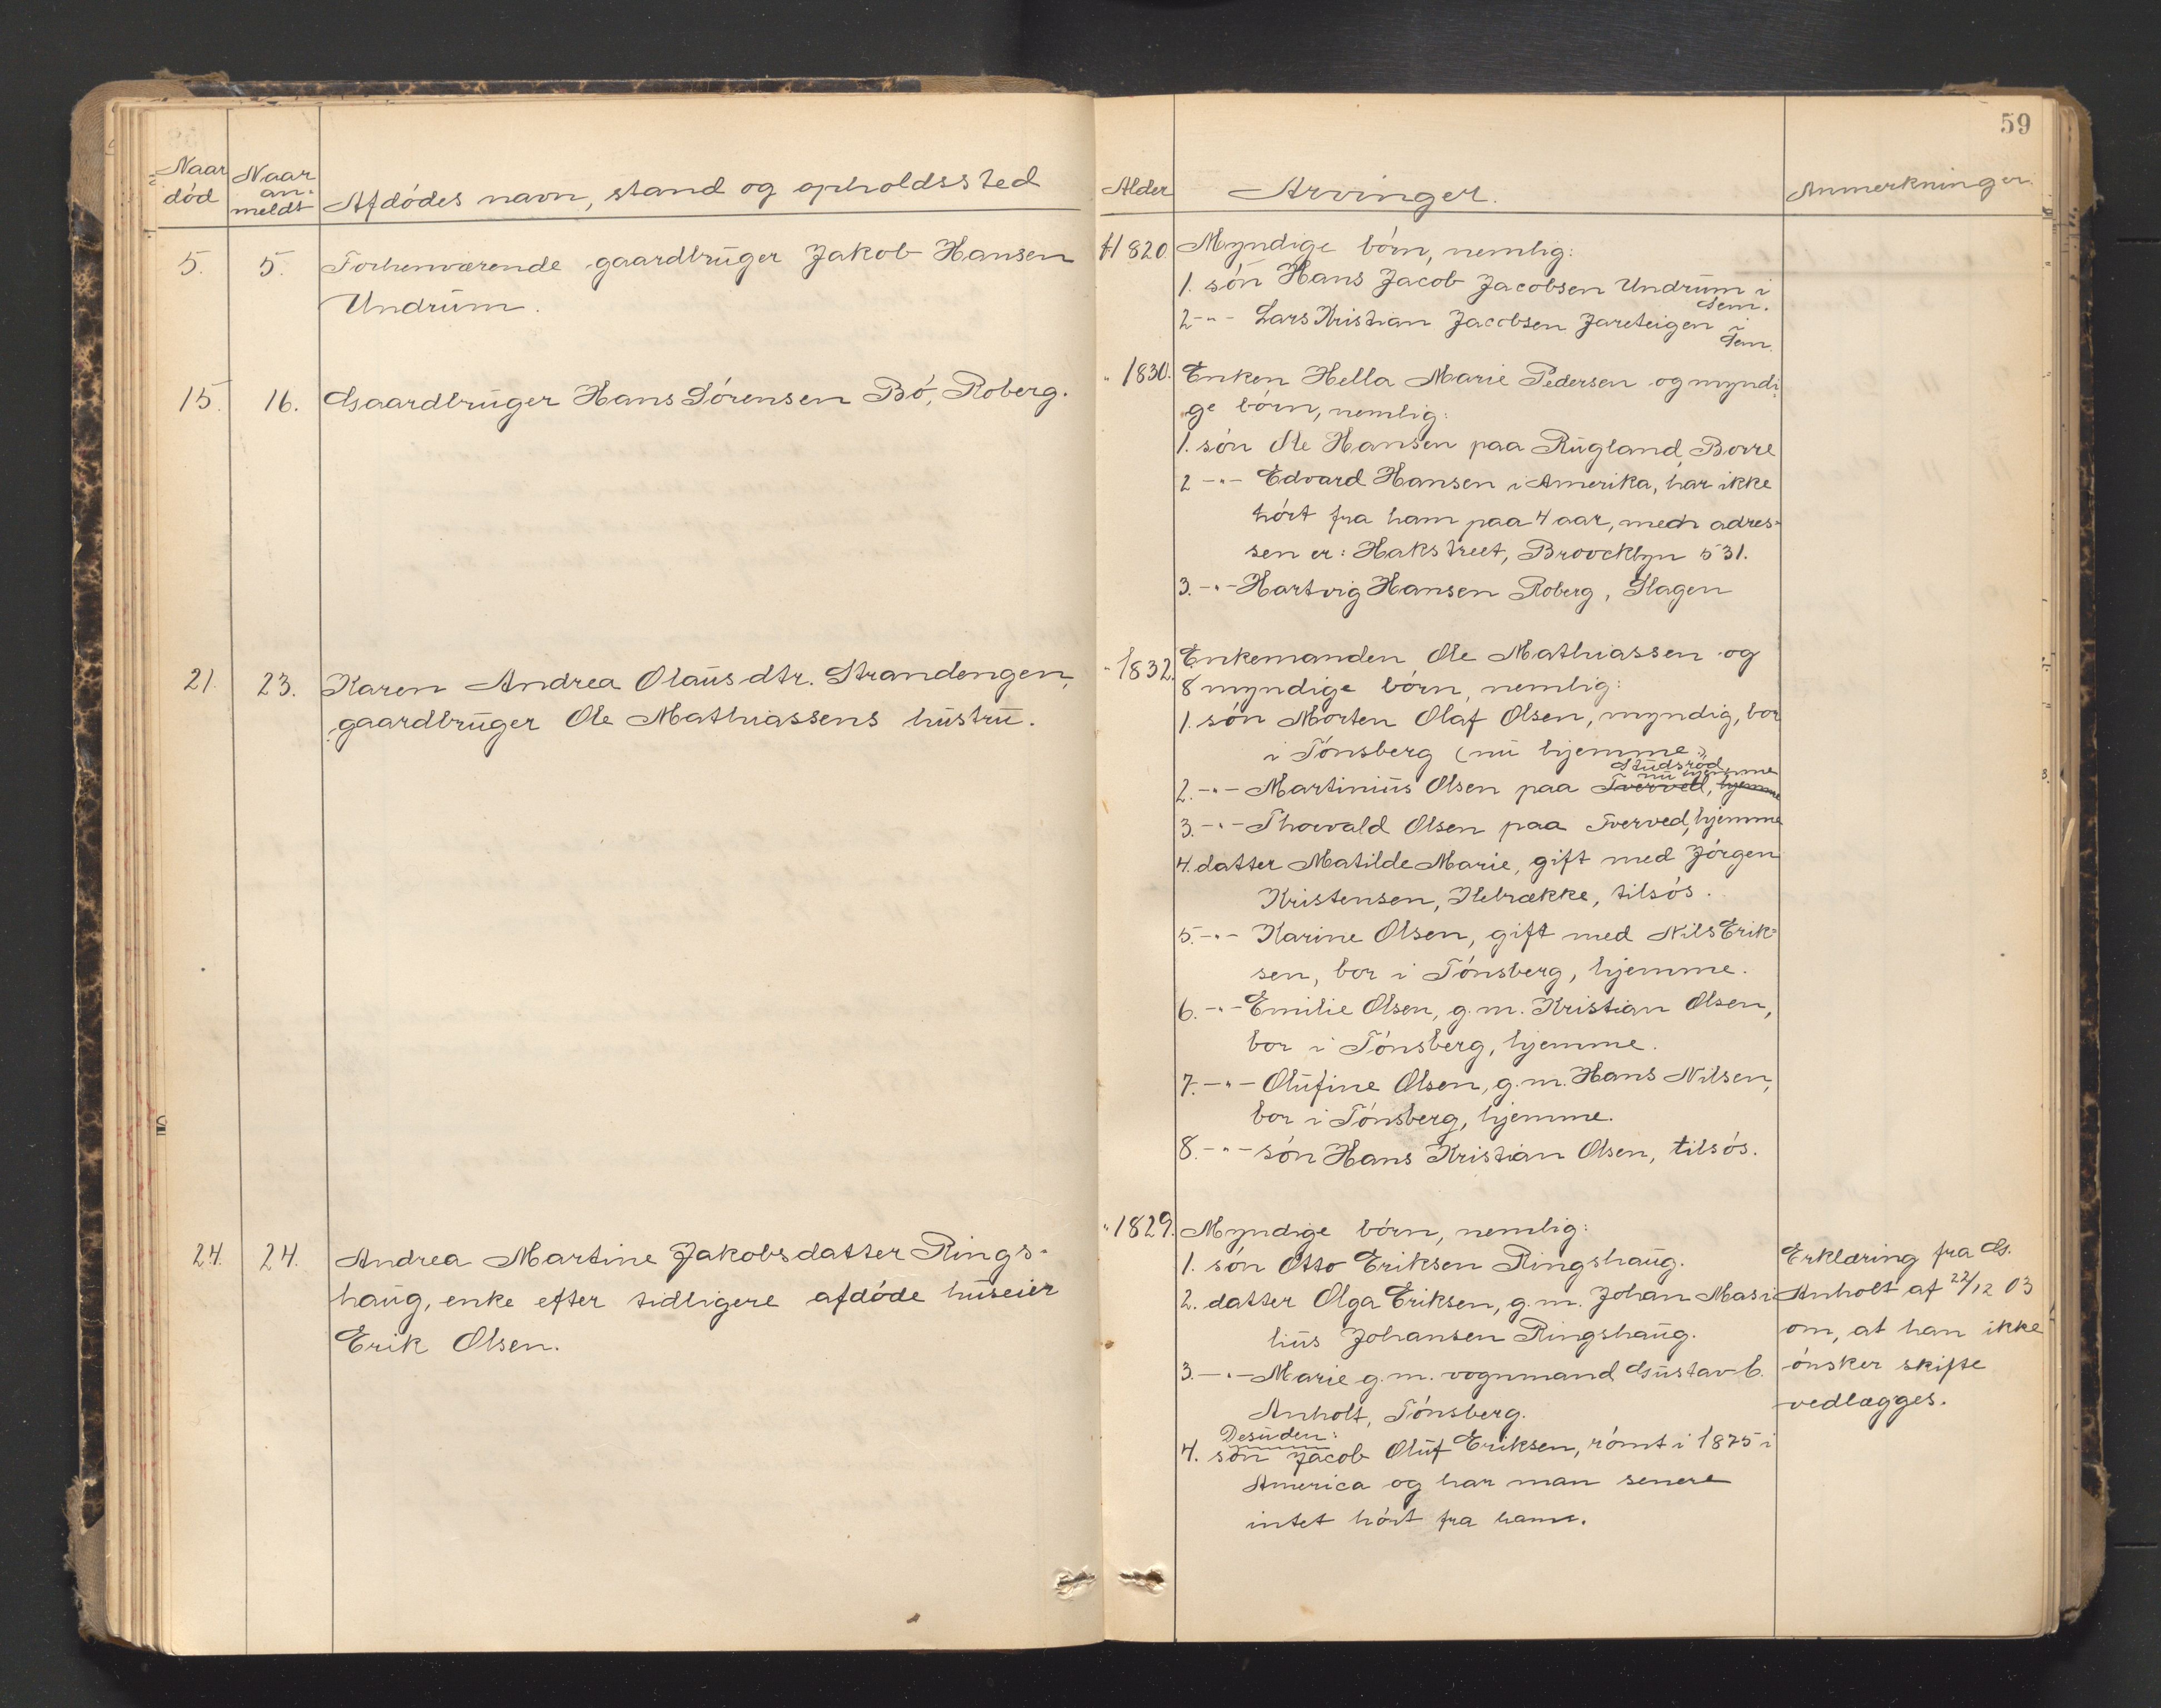 59
Naar død
Naar an-meldt
Afdødes navn, stand og opholdssted
Alder
Arvinger.
Anmerkninger.
5.
5.
Forhenværende gaardbruger Jakob Hansen
Undrum.
f/1820.
Myndige børn, nemlig:
1. søn Hans Jacob Jacobsen Undrum i
Sem.
2 -"- Lars Kristian Jacobsen Jareteigen i
Sem.
15.
16.
Gaardbruger Hans Sørensen Bø, Roberg.
" 1830.
Enken Hella Marie Pedersen og myndi-
ge børn, nemlig:
1. søn Ole Hansen paa Rugland, Borre
2 -"- Edvard Hansen i Amerika, har ikke
hørt fra ham paa 4 aar, men adres-
sen er: Hakstreet, Broocklyn 531.
3. -"- Hartvig Hansen Roberg, Slagen
21.
23.
Karen Andrea Olausdtr. Strandengen,
gaardbruger Ole Mathiassens hustru.
" 1832.
Enkemanden Ole Mathiassen og
8 myndige børn, nemlig:
1. søn Morten Olaf Olsen, myndig, bor
i Tønsberg (nu hjemme)
Studsrød
nu hjemme
2. -"- Martinius Olsen paa Tverved, hjemme
3. -"- Thorvald Olsen paa Tverved, hjemme
4. datter Matilde Marie, gift med Jørgen
Kristensen, Klebrække, tilsøs.
5. -"- Karine Olsen, gift med Nils Erik-
sen, bor i Tønsberg, hjemme.
6. -"- Emilie Olsen, g. m. Kristian Olsen,
bor i Tønsberg, hjemme.
7. -"- Olufine Olsen, g. m. Hans Nilsen,
bor i Tønsberg, hjemme.
8. -"- søn Hans Kristian Olsen, tilsøs.
24.
24.
Andrea Martine Jakobsdatter Rings-
haug, enke efter tidligere afdøde huseier
Erik Olsen.
" 1829.
Myndige børn, nemlig:
1. søn Otto Eriksen Ringshaug.
2. datter Olga Eriksen, g. m. Johan Masi
lius Johansen Ringshaug.
3. -"- Marie g. m. vognmand Gustav C.
Anholt, Tønsberg.
Desuden:
4. søn Jacob Oluf Eriksen, rømt i 1875 i
America og har man senere
intet hørt fra ham.
Erklæring fra G.
Anholt af 22/12 03
om, at han ikke
ønsker skifte
vedlægges.